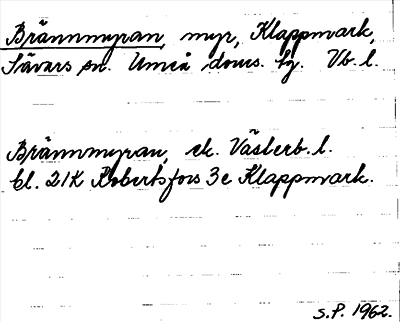 Brännmyran, myr, Klappmark,
Sävars sn. Umeå doms. tg. Vb. l.
Brännmyran, ek. Västerb. l.
bl. 21K Robertsfors 3c Klappmark.
S.P. 1962.